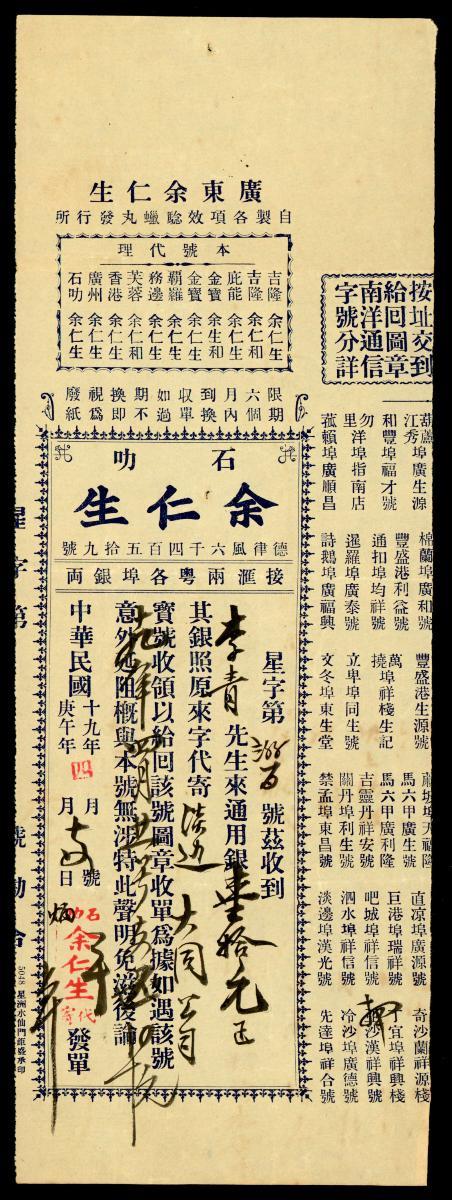 廣東余仁生
自製各項效騐蠟丸發行所
本號代理
吉隆 余仁生
吉隆 余仁和
庇能 余仁生
金寶 余生和
金寶 余仁生
霸羅 余仁生
務邊 余仁生
芙蓉 余仁和
香港 余仁生
廣州 余仁生
石叻 余仁生
限期
六個
月內
到換
收單
如過
期不
換即
視為
廢紙
按址交到
給回圖章
南洋通信
字號分詳
葫蘆埠廣生源
江秀
和豐埠福才號
勿里洋埠指南店
菰賴埠廣順昌
棉蘭埠廣和號
豐盛港利益號
通扣埠均祥號
暹羅埠廣泰號
詩鵝埠廣福興
豐盛港生源號
萬撓埠祥棧生記
立卑埠同生號
文冬埠東生堂
蔴坡埠天福隆
馬六甲廣生號
馬六甲廣利隆
吉靈丹祥安號
關丹埠利生號
禁孟埠東昌號
直凉埠廣源號
巨港埠瑞祥號
吧城埠祥信號
泗水埠祥信號
淡邊埠漢光號
奇沙蘭祥源棧
才官埠祥興棧
沙漢祥興號
冷沙埠廣德號
先達埠祥合號
石叻
余仁生
德律風六千四百五拾九號
接滙兩粤各埠銀両
星字第 號茲收到
李青 先生來通用銀 壹拾元正
其銀照原來字代寄 淡边 大同公司
寳號收領以給回該號圖章收單為據如遇該號
意外 阻概與本號無涉特此聲明免滋後論
中華民國 十九年 庚午年 四月 日 號 發單
石叻 余仁生 代寄
星字第 號
5048 星洲水仙門鉅盛承印